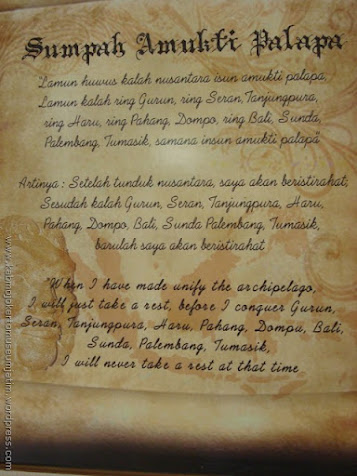 Sumpah Amukti Palapa
"Lamun huwus kalah nusantara isun amukti palapa,
Lamun kalah ring Gurun, ring Seran, Tanjungpura,
ring Haru, ring Pahang, Dompo, ring Bali, Sunda,
Palembang, Tumasik, samana insun amukti palapa"
Artinya : Setelah tunduk nusantara, saya akan beristirahat,
Sesudah kalah Gurun, Seran, Tanjungpura, Haru,
Pahang, Dompo, Bali, Sunda Palembang, Tumasik,
barulah saya akan beristirahat
"When I have made unify the archipelago,
I will just take a rest, before I conquer Gurun,
Seran, Tanjungpura, Haru, Pahang, Dompu, Bali,
Sunda, Palembang, Tumasik,
I will never take a rest at that time